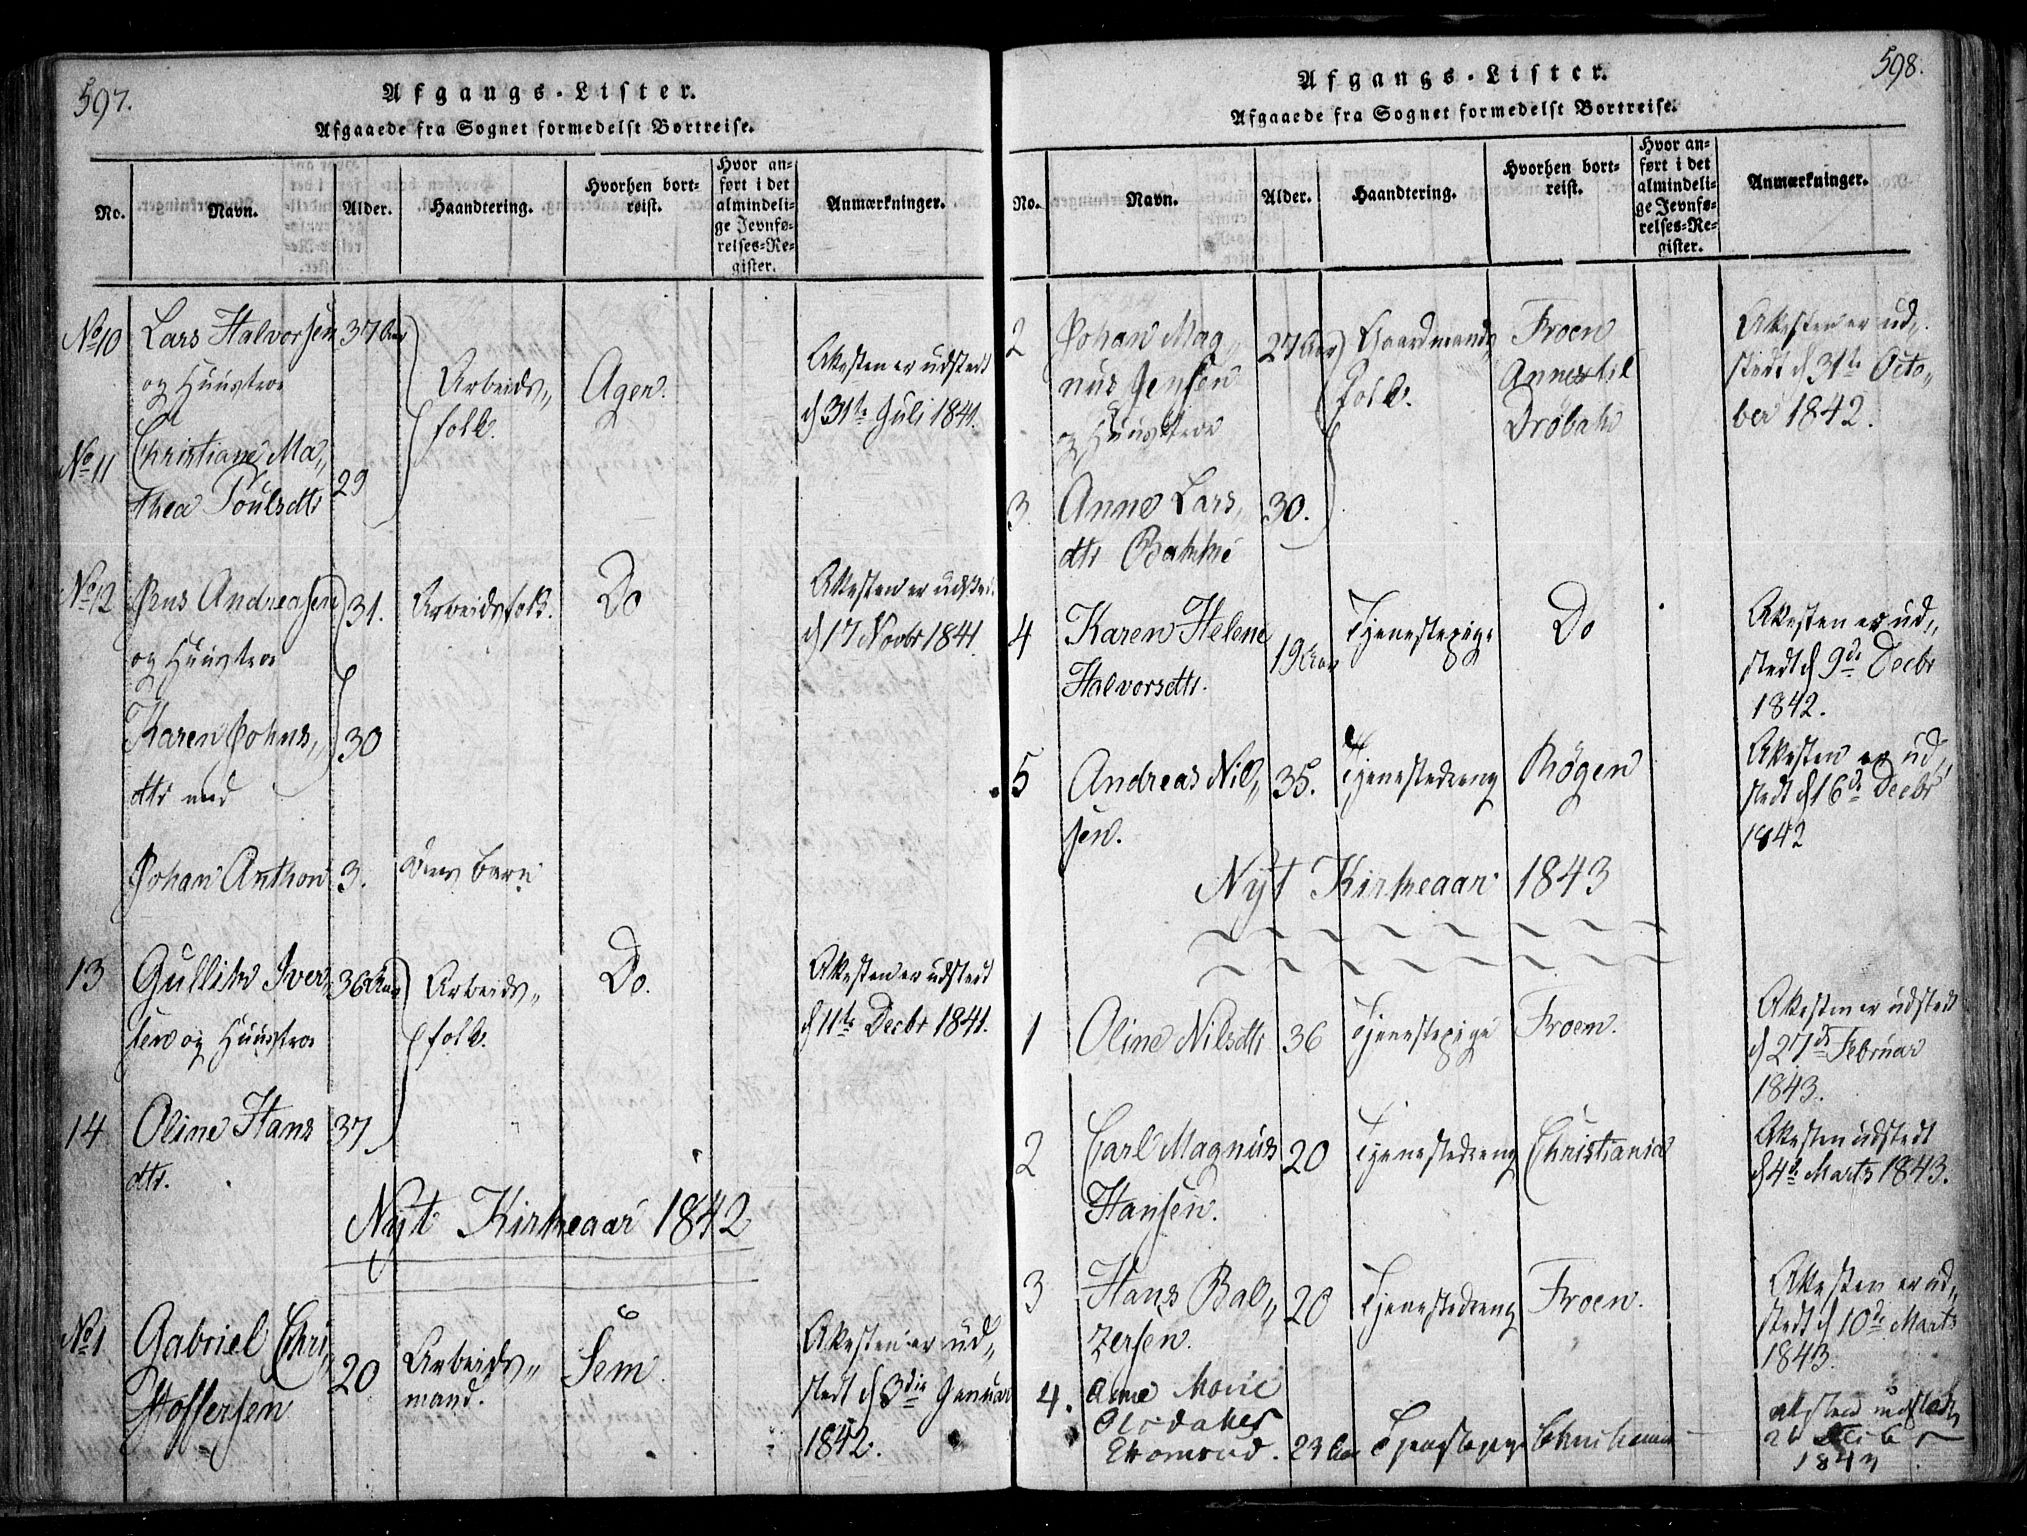 597.
Afgangs-Lister.
Afgaaede fra Sognet formedelst Bortreise.
No.
Navn.
Alder.
Haandtering.
Hvorhen bort-
reist.
Hvor an-
ført i det
almindeli-
ge Jevnfø-
relses-Re-
gister.
Anmærkninger.
No 10
Lars Halvorsen
og Huustroe
37 Aar
Arbeids„
folk.
Agers.
Attesten er udstedt
d 31te Juli 1841.
No 11
Christiane Ma„
thea Poulsdtr
29
No 12
Jens Andreasen
og Huustroe
31.
Arbeidsfolk.
Do
Attesten er udsted
d 17 Novbr 1841
Karen Johns„
dtr med
30
Johan Anthon
3.
deres barn
13
Gullik Iver„
sen og Huustroe
36 Aar
Arbeids„
folk.
Do.
Attesten er udstedt
d 11te Decbr 1841.
14
Oline Hans
dtr.
37
Nyt Kirkeaar 1842
No 1
Gabriel Chri„
stoffersen
20
Arbeids„
mand.
Sem.
Attesten er ud„
stedt d 3die Januar
1842.
598.
Afgangs-Lister.
Afgaaede fra Sognet formedelst Bortreise.
No.
Navn.
Alder.
Haandtering.
Hvorhen bort-
reist.
Hvor an-
ført i det
almindeli-
ge Jevnfø-
relses-Re-
gister.
Anmærkninger.
2
Johan Mag„
nus Jensen
og Huustroe
27 Aar
Gaardmands
folk.
Froen
Annex til
Drøbak
Attesten er ud„
stedt d 31te Octo„
ber 1842.
3.
Anne Lars„
dtr Bakke
30.
4
Karen Helene
Halvorsdtr.
19 Aar
Tjenestepige
Do
Attesten er ud„
stedt d 9de Decbr
1842.
5
Andreas Nil„
sen.
35.
Tjenestedreng
Røgen
Attesten er ud„
stedt d 16de Decbr
1842
Nyt Kirkeaar 1843
1
Oline Nilsdtr
36
Tjenestepige
Froen.
Attesten er udstedt
d 27de Februar
1843.
2
Carl Magnus
Hansen.
20
Tjenestedreng
Christiania
Attesten udstedt
d 4de Marts 1843.
3
Hans Bal„
zersen.
20
Tjenestedreng
Froen.
Attesten er ud„
stedt d 10de Marts
1843.
4.
Anne Marie
Olsdatter
23 Aar
Tjenestepige
Christiania